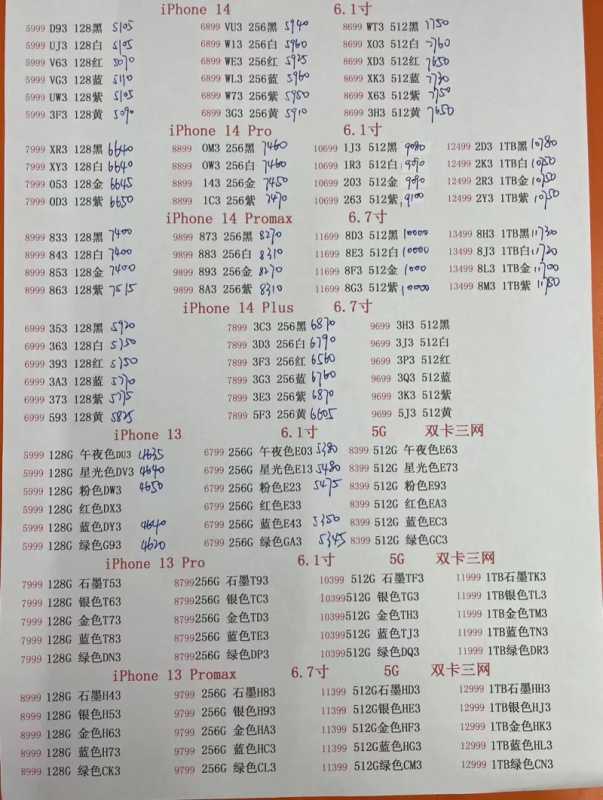 iPhone 14 6.1寸
5999 D93 128黑 5105 6899 VU3 256黑 5940 8699 WT3 512黑 7750
5999 UJ3 128白 5105 6899 W13 256白 5960 8699 XO3 512白 7760
5999 V63 128红 5070 6899 WE3 256红 5925 8699 XD3 512红 7650
5999 VG3 128蓝 5110 6899 WL3 256蓝 5960 8699 XK3 512蓝 7730
5999 UW3 128紫 5105 6899 W73 256紫 5950 8699 X63 512紫 7750
5999 3F3 128黄 5090 6899 3G3 256黄 5910 8699 3H3 512黄 7650
iPhone 14 Pro 6.1寸
7999 XR3 128黑 6640 8899 0M3 256黑 7460 10699 1J3 512黑 9080 12499 2D3 1TB黑 10780
7999 XY3 128白 6640 8899 0W3 256白 7460 10699 1R3 512白 9090 12499 2K3 1TB白 10750
7999 053 128金 6645 8899 143 256金 7450 10699 203 512金 9090 12499 2R3 1TB金 10750
7999 0D3 128紫 6650 8899 1C3 256紫 7470 10699 263 512紫 9100 12499 2Y3 1TB紫 10750
iPhone 14 Promax 6.7寸
8999 833 128黑 7400 9899 873 256黑 8270 11699 8D3 512黑 10000 13499 8H3 1TB黑 11730
8999 843 128白 7400 9899 883 256白 8310 11699 8E3 512白 10000 13499 8J3 1TB白 11720
8999 853 128金 7400 9899 893 256金 8270 11699 8F3 512金 1000 13499 8L3 1TB金 11700
8999 863 128紫 7515 9899 8A3 256紫 8310 11699 8G3 512紫 10000 13499 8M3 1TB紫 11750
iPhone 14 Plus 6.7寸
6999 353 128黑 5920 7899 3C3 256黑 6870 9699 3H3 512黑
6999 363 128白 5750 7899 3D3 256白 6790 9699 3J3 512白
6999 393 128红 5750 7899 3F3 256红 6560 9699 3P3 512红
6999 3A3 128蓝 5770 7899 3G3 256蓝 6760 9699 3Q3 512蓝
6999 373 128紫 5775 7899 3E3 256紫 6870 9699 3K3 512紫
6999 593 128黄 5825 7899 5F3 256黄 6605 9699 5J3 512黄
iPhone 13 6.1寸 5G 双卡三网
5999 128G 午夜色DU3 4635 6799 256G 午夜色E03 5380 8399 512G 午夜色E63
5999 128G 星光色DV3 4640 6799 256G 星光色E13 5480 8399 512G 星光色E73
5999 128G 粉色DW3 4650 6799 256G 粉色E23 5475 8399 512G 粉色E93
5999 128G 红色DX3 6799 256G 红色E33 8399 512G 红色EA3
5999 128G 蓝色DY3 4640 6799 256G 蓝色E43 5350 8399 512G 蓝色EC3
5999 128G 绿色G93 4620 6799 256G 绿色GA3 5345 8399 512G 绿色GC3
iPhone 13 Pro 6.1寸 5G 双卡三网
7999 128G 石墨T53 8799 256G 石墨T93 10399 512G 石墨TF3 11999 1TB石墨TK3
7999 128G 银色T63 8799 256G 银色TC3 10399 512G 银色TG3 11999 1TB银色TL3
7999 128G 金色T73 8799 256G 金色TD3 10399 512G 金色TH3 11999 1TB金色TM3
7999 128G 蓝色T83 8799 256G 蓝色TE3 10399 512G 蓝色TJ3 11999 1TB蓝色TN3
7999 128G 绿色DN3 8799 256G 绿色DP3 10399 512G 绿色DQ3 11999 1TB绿色DR3
iPhone 13 Promax 6.7寸 5G 双卡三网
8999 128G 石墨H43 9799 256G 石墨H83 11399 512G石墨HD3 12999 1TB石墨HH3
8999 128G 银色H53 9799 256G 银色H93 11399 512G银色HE3 12999 1TB银色HJ3
8999 128G 金色H63 9799 256G 金色HA3 11399 512G金色HF3 12999 1TB金色HK3
8999 128G 蓝色H73 9799 256G 蓝色HC3 11399 512G蓝色HG3 12999 1TB蓝色HL3
8999 128G 绿色CK3 9799 256G 绿色CL3 11399 512G绿色CM3 12999 1TB绿色CN3